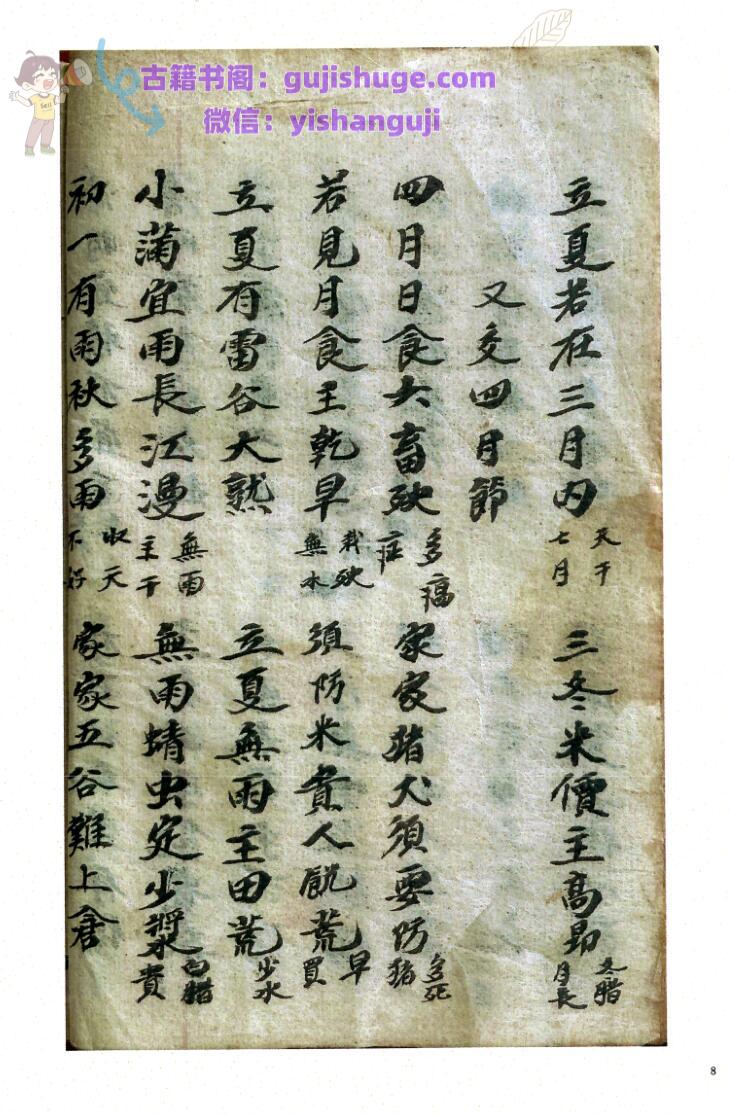 古籍书阁：gujishuge.com
微信：yishanguji
Sell
立夏若在三月内 天干七月 三冬米價主高昻 冬腊月長
又交四月節
四月日食六畜殃 多瘟症 家家猪犬須要防 多死猪
若見月食主乾旱 栽殃無水 須防米貴人飢荒 早買
立夏有雷谷大熟 立夏無雨主田荒 少水
小滿宜雨長江漫 無雨主干 無雨蜻虫定少漿 白腊貴
初一有雨秋多雨 收天不好 家家五谷難上倉
8